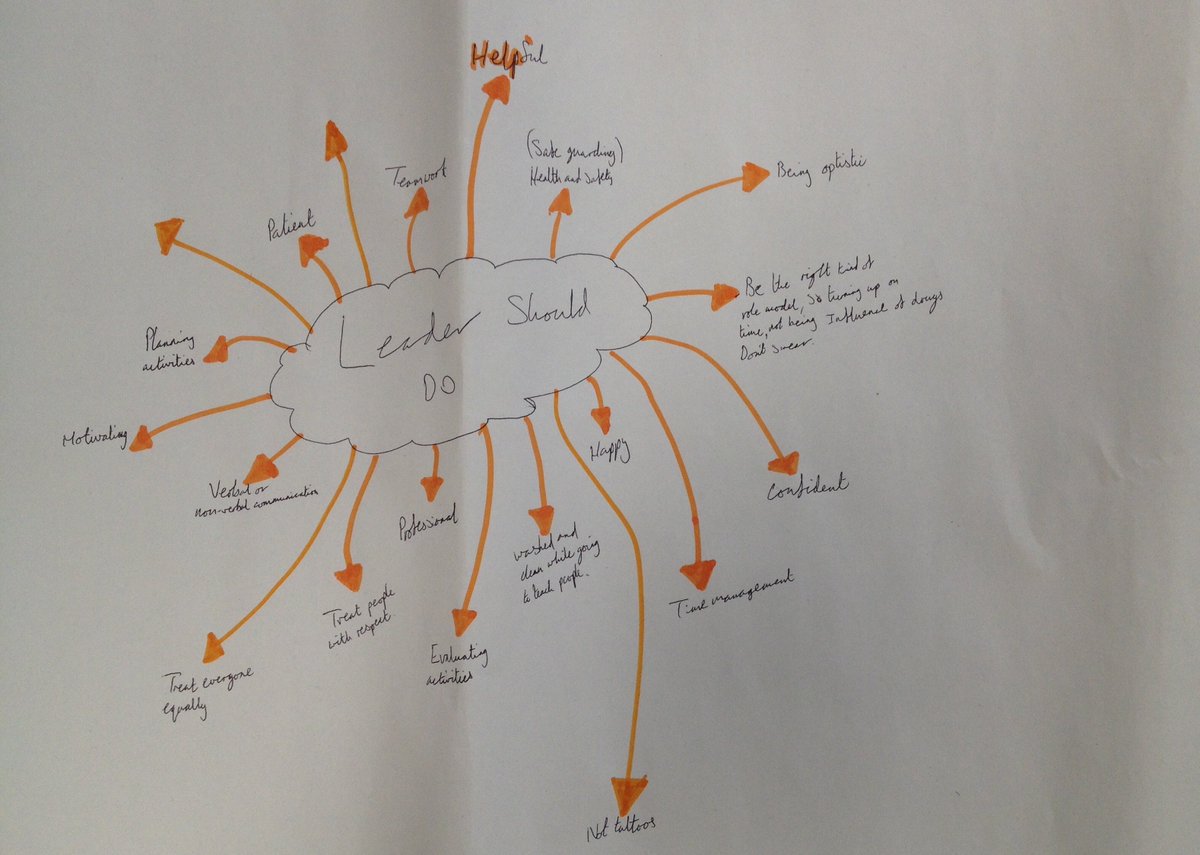 Helpful
(Safe guarding)
Health and safety
Being optistic
Teamwork
Patient
Leader Should
DO
Be the right kind of
role model, so turning up on
time, not being Influence of drugs
Don't swear.
Planning
activities
Motivating
Verbal or
non-verbal communication
Professional
Happy
Confident
washed and
clean while going
to teach people.
Time management
Treat people
with respect
Evaluating
activities
Treat everyone
equally
Not tattoos